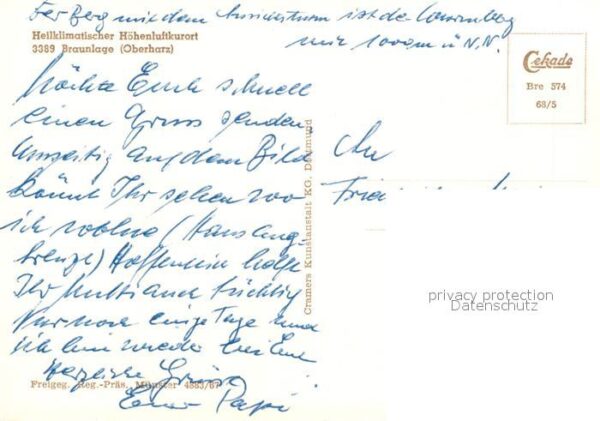 Der Berg mit dem Aussichtsturm ist der Wurmberg
mit 1000 m ü. N.N.
Heilklimatischer Höhenluftkurort
3389 Braunlage (Oberharz)
Cekade
Bre 574
63/5
Möchte Euch schnell
einen Gruss senden,
umseitig auf dem Bild
könnt Ihr sehen wo
ich wohne (Haus ange-
kreuzt) Hoffentlich helft
Ihr Mutti auch tüchtig
Nur noch einige Tage und
ich bin wieder bei Euch
Herzliche Grüsse
Euer Papi
An
Cramers Kunstanstalt KG. Dortmund
privacy protection
Datenschutz
Freigeg. Reg.-Präs. Münster 4883/67